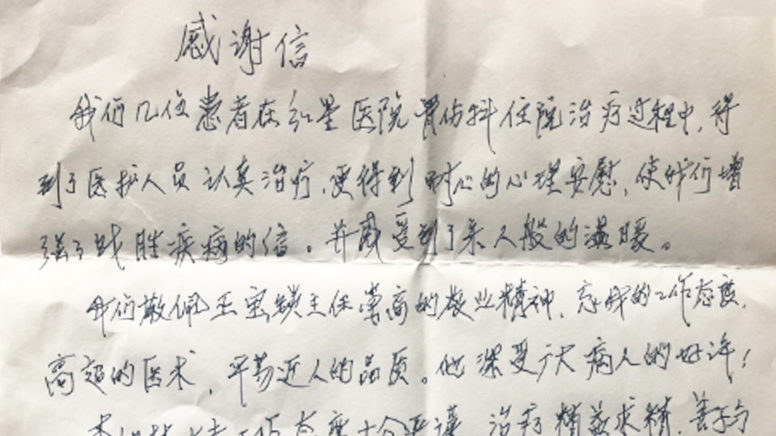 感谢信
我们几位患者在红星医院骨伤科住院治疗过程中，得
到了医护人员认真治疗，更得到耐心的心理安慰，使我们增
强了战胜疾病的信。并感受到了亲人般的温暖。
我们敬佩王宝铁主任崇高的敬业精神，忘我的工作态度，
高超的医术，平易近人的品质。他深受广大病人的好评！
工作态度十分严谨，治疗精益求精，善于与